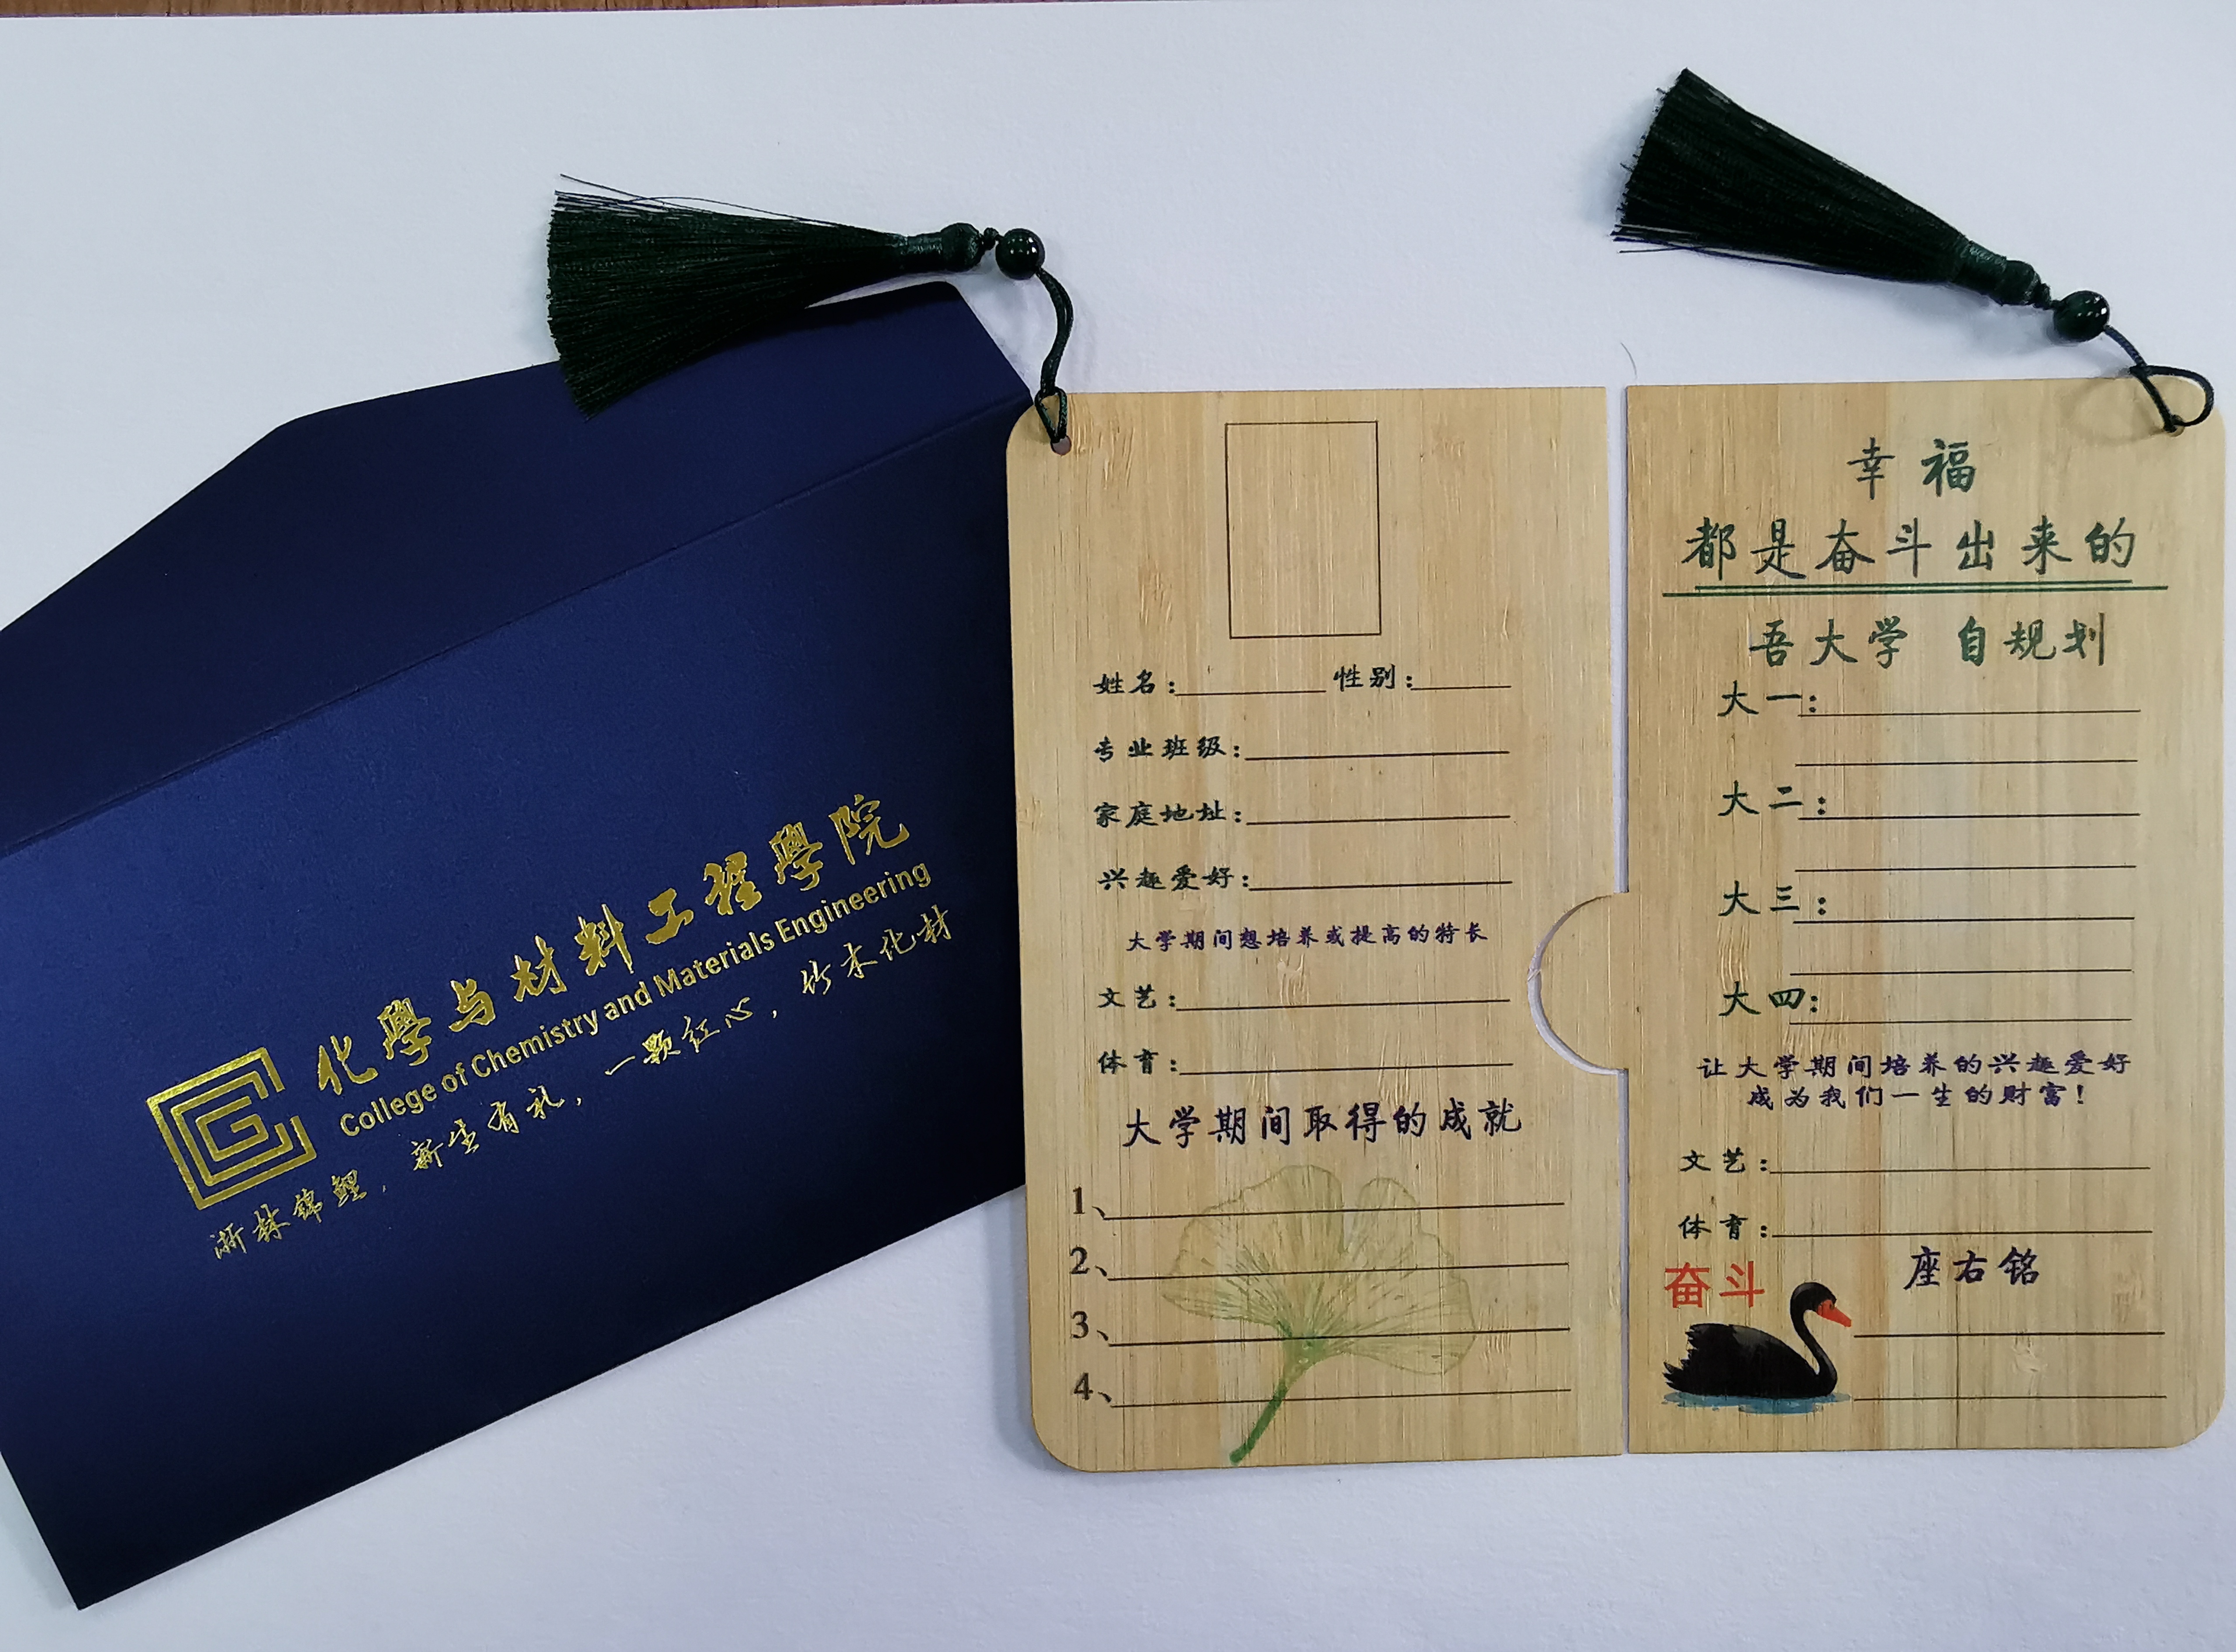 化學与材料工程學院
College of Chemistry and Materials Engineering
浙林锦鲤，新生有礼，一颗红心，竹木化材
姓名： 性别：
专业班级：
家庭地址：
兴趣爱好：
大学期间想培养或提高的特长
文艺：
体育：
大学期间取得的成就
1、
2、
3、
4、
幸福
都是奋斗出来的
吾大学 自规划
大一：
大二：
大三：
大四：
让大学期间培养的兴趣爱好
成为我们一生的财富！
文艺：
体育：
奋斗
座右铭